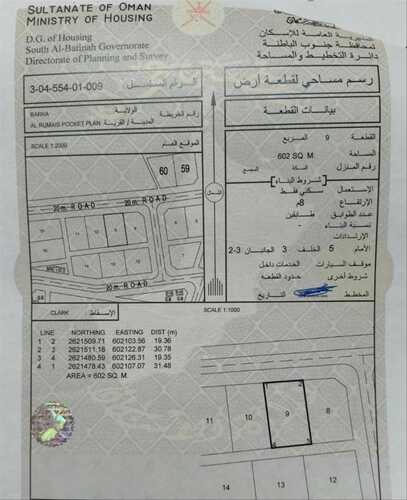 SULTANATE OF OMAN
MINISTRY OF HOUSING
D.G. of Housing
South Al-Batinah Governorate
Directorate of Planning and Survey
المديرية العامة للإسكان
لمحافظة جنوب الباطنة
دائرة التخطيط والمساحة
3-04-554-01-009
الرقم المسلسل
رسم مساحي لقطعة أرض
BARKA
الولاية
AL RUMAIS POCKET PLAN
المدينة / القرية
رقم الخريطة
بيانات القطعة
SCALE 1:2000
الموقع العام
القطعة 9 المربع
المساحة 602 SQ. M.
رقم المنزل السكة المجمع
شروط البناء
الاستعمال سكني فقط
الإرتفاع 8م
عدد الطوابق طابقين
نسبة البناء
الإرتدادات
الأمام 5 الخلف 3 الجانبان 3-2
موقف السيارات الخدمات داخل
شروط أخرى حدود القطعة
المخطط التاريخ
60
59
20m. ROAD
20m. ROAD
11
10
9
8
12
13
14
الشمال
CLARK
الإسقاط
SCALE 1:1000
LINE NORTHING EASTING DIST (m)
1 2 2621509.71 602103.56 19.36
2 3 2621511.18 602122.87 30.78
3 4 2621480.59 602126.31 19.35
4 1 2621478.43 602107.07 31.48
AREA = 602 SQ. M.
11
10
9
8
14
13
12